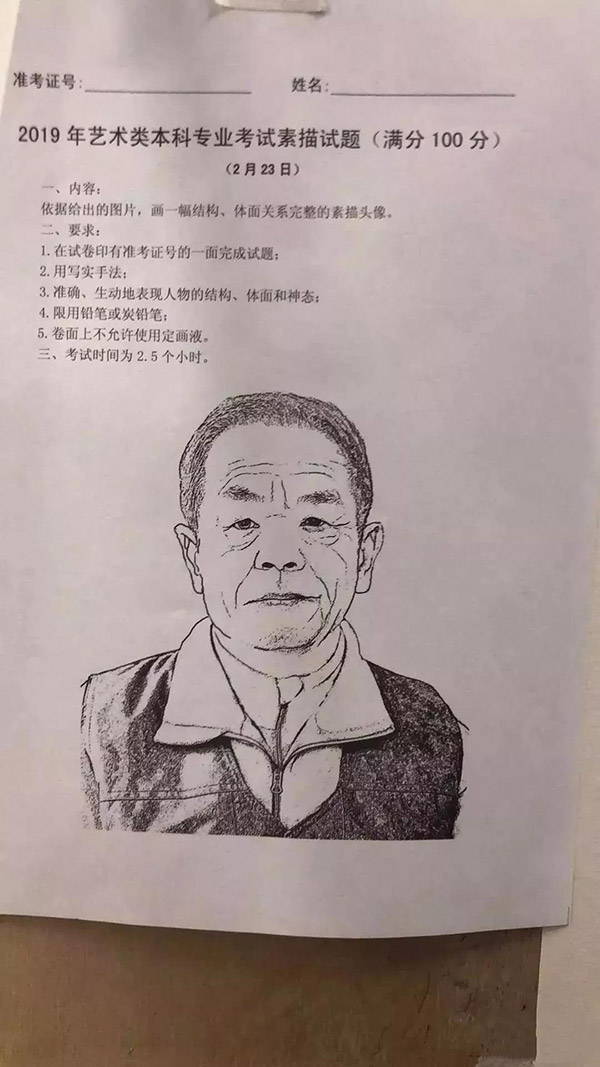 准考证号: 姓名:
2019年艺术类本科专业考试素描试题（满分100分）
（2月23日）
一、内容：
依据给出的图片，画一幅结构、体面关系完整的素描头像。
二、要求：
1.在试卷印有准考证号的一面完成试题；
2.用写实手法；
3.准确、生动地表现人物的结构、体面和神态；
4.限用铅笔或炭铅笔；
5.卷面上不允许使用定画液。
三、考试时间为2.5个小时。